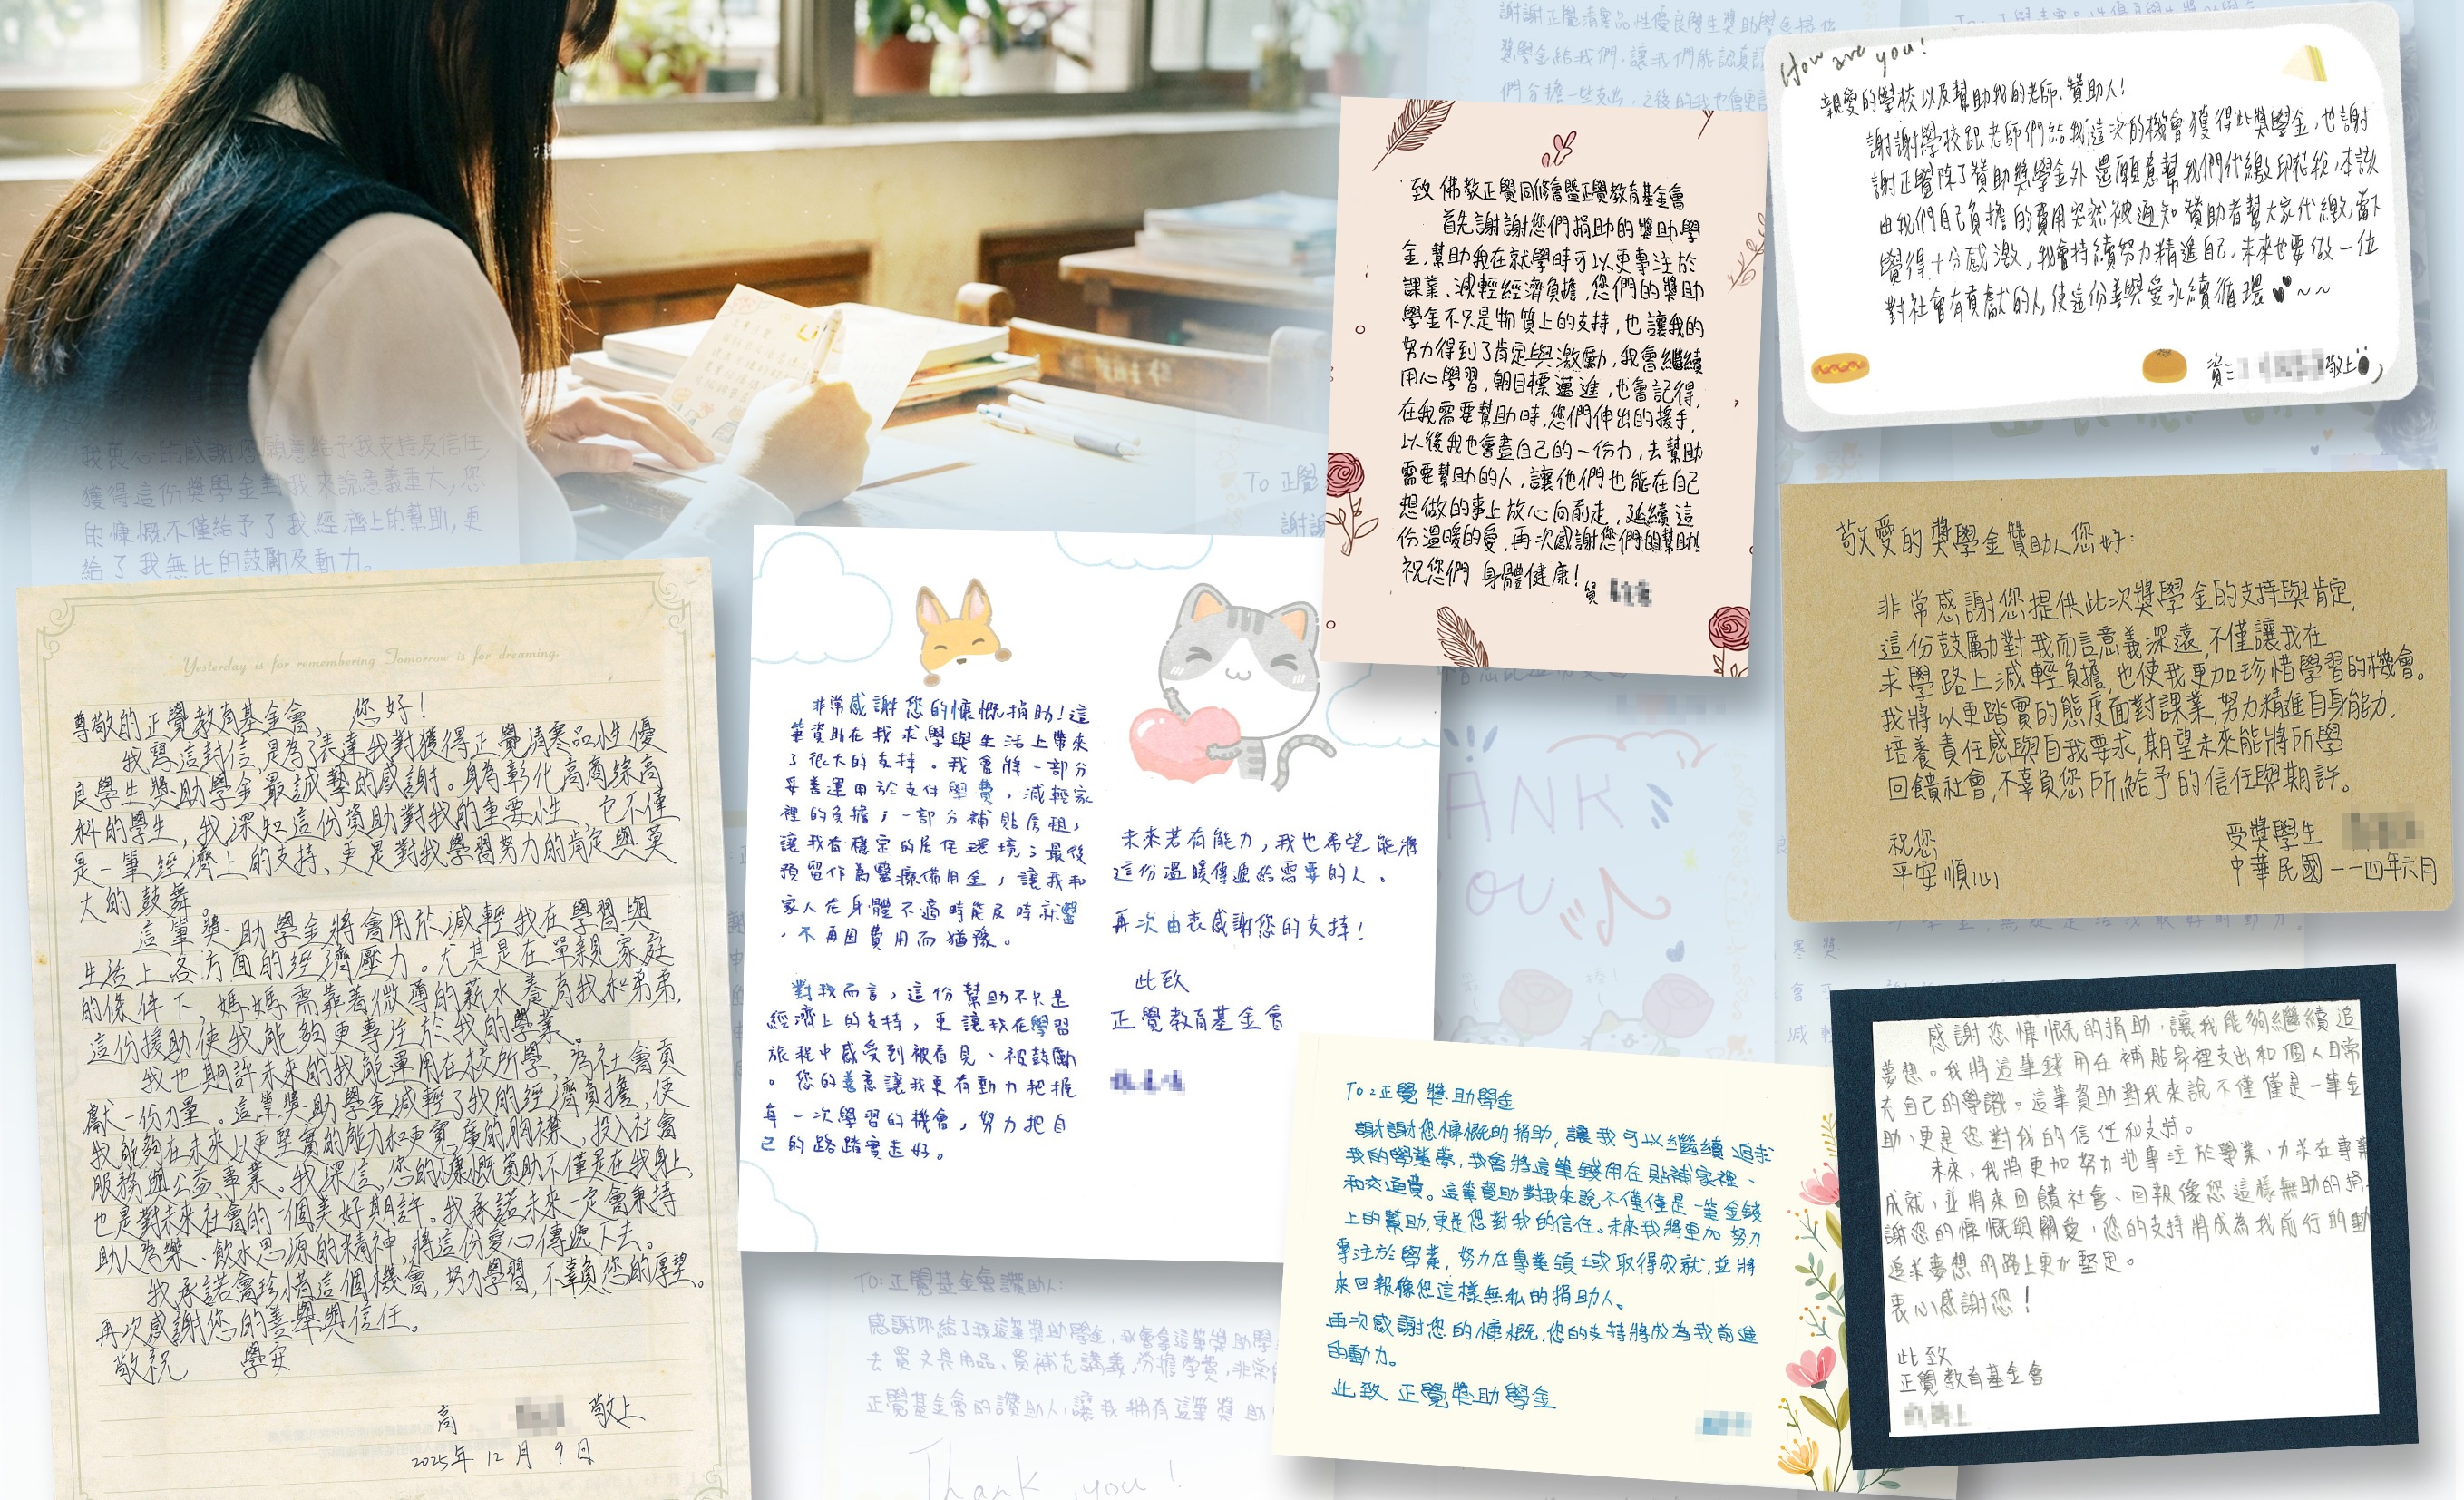 我衷心的感謝您願意給予我支持及信任,
獲得這份獎學金對我來說意義重大,您
的慷慨不僅給予了我經濟上的幫助,更
給了我無比的鼓勵及動力。
Yesterday is for remembering Tomorrow is for dreaming.
尊敬的正覺教育基金會, 您好!
我寫這封信,是為了表達我對獲得正覺清寒品性優
良學生獎助學金最誠摯的感謝。身為彰化高商綜高
科的學生,我深知這份資助對我的重要性,它不僅
是一筆經濟上的支持、更是對我學習努力的肯定與莫
大的鼓舞。
這筆獎助學金將會用於減輕我在學習與
生活上各方面的經濟壓力。尤其是在單親家庭
的條件下,媽媽需靠著微薄的薪水養育我和弟弟,
這份援助使我能夠更專注於我的學業。
我也期許未來的我能運用在校所學,為社會貢
獻一份力量。這筆獎助學金減輕了我的經濟負擔,使
我能夠在未來以更堅實的能力和更寬廣的胸襟,投入社會
服務與公益事業。我深信,您的慷慨資助不僅是在我身上,
也是對未來社會的一個美好期許。我承諾未來一定會秉持
助人為樂、飲水思源的精神,將這份愛心傳遞下去。
我承諾會珍惜這個機會,努力學習,不辜負您的厚望。
再次感謝您的善舉與信任。
敬祝 學安
高 敬上
2025年 12月 9日
非常感謝您的慷慨捐助!這
筆資助在我求學與生活上帶來
了很大的支持。我會將一部分
妥善運用於支付學費,減輕家
裡的負擔;一部分補貼房租,
讓我有穩定的居住環境;最後
預留作為醫療備用金,讓我和
家人在身體不適時能及時就醫
,不再因費用而猶豫。
對我而言,這份幫助不只是
經濟上的支持,更讓我在學習
旅程中感受到被看見、被鼓勵
。您的善意讓我更有動力把握
每一次學習的機會,努力把自
己的路踏實走好。
未來若有能力,我也希望能將
這份溫暖傳遞給需要的人。
再次由衷感謝您的支持!
此致
正覺教育基金會
致 佛教正覺同修會暨正覺教育基金會
首先謝謝您們捐助的獎助學
金,幫助我在就學時可以更專注於
課業、減輕經濟負擔,您們的獎助
學金不只是物質上的支持,也讓我的
努力得到了肯定與激勵,我會繼續
用心學習,朝目標邁進,也會記得,
在我需要幫助時,您們伸出的援手,
以後我也會盡自己的一份力,去幫助
需要幫助的人,讓他們也能在自己
想做的事上放心向前走,延續這
份溫暖的愛,再次感謝您們的幫助!
祝您們 身體健康!
How are you!
親愛的學校以及幫助我的老師、贊助人!
謝謝學校跟老師們給我這次的機會獲得此獎學金,也謝
謝正覺除了贊助獎學金外還願意幫我們代繳印花稅,本該
由我們自己負擔的費用突然被通知贊助者幫大家代繳,當下
覺得十分感激,我會持續努力精進自己,未來也要做一位
對社會有貢獻的人,使這份善與愛永續循環~~
資三 敬上
敬愛的獎學金贊助人您好:
非常感謝您提供此次獎學金的支持與肯定,
這份鼓勵對我而言意義深遠,不僅讓我在
求學路上減輕負擔,也使我更加珍惜學習的機會。
我將以更踏實的態度面對課業,努力精進自身能力,
培養責任感與自我要求,期望未來能將所學
回饋社會,不辜負您所給予的信任與期許。
祝您
平安順心
受獎學生
中華民國一一四年六月
To:正覺 獎助學金
謝謝您慷慨的捐助,讓我可以繼續追求
我的學業夢,我會將這筆錢用在貼補家裡、
和交通費。這筆資助對我來說不僅僅是一筆金錢
上的幫助,更是您對我的信任。未來我將更加努力
專注於學業,努力在專業領域取得成就,並將
來回報像您這樣無私的捐助人。
再次感謝您的慷慨,您的支持將成為我前進
的動力。
此致 正覺獎助學金
感謝您慷慨的捐助,讓我能夠繼續追
夢想。我將這筆錢用在補貼家裡支出和個人日常
充自己的學識。這筆資助對我來說不僅僅是一筆金
助,更是您對我的信任和支持。
未來,我將更加努力地專注於學業,力求在專業
成就,並將來回饋社會、回報像您這樣無助的捐
謝您的慷慨與關愛,您的支持將成為我前行的動
追求夢想的路上更加堅定。
衷心感謝您!
此致
正覺教育基金會
TO:正覺基金會讚助人:
感謝你給了我這筆獎助學金,我會拿這筆獎助學
去買文具用品、買補充講義,分擔學費,非常
正覺基金會的讚助人,讓我擁有這筆獎助
Thank you!
謝謝正覺清寒品性優良學生獎助學金提供
獎學金給我們,讓我們能認真
們分擔一些支出,之後的我也會更
To 正覺
ANK